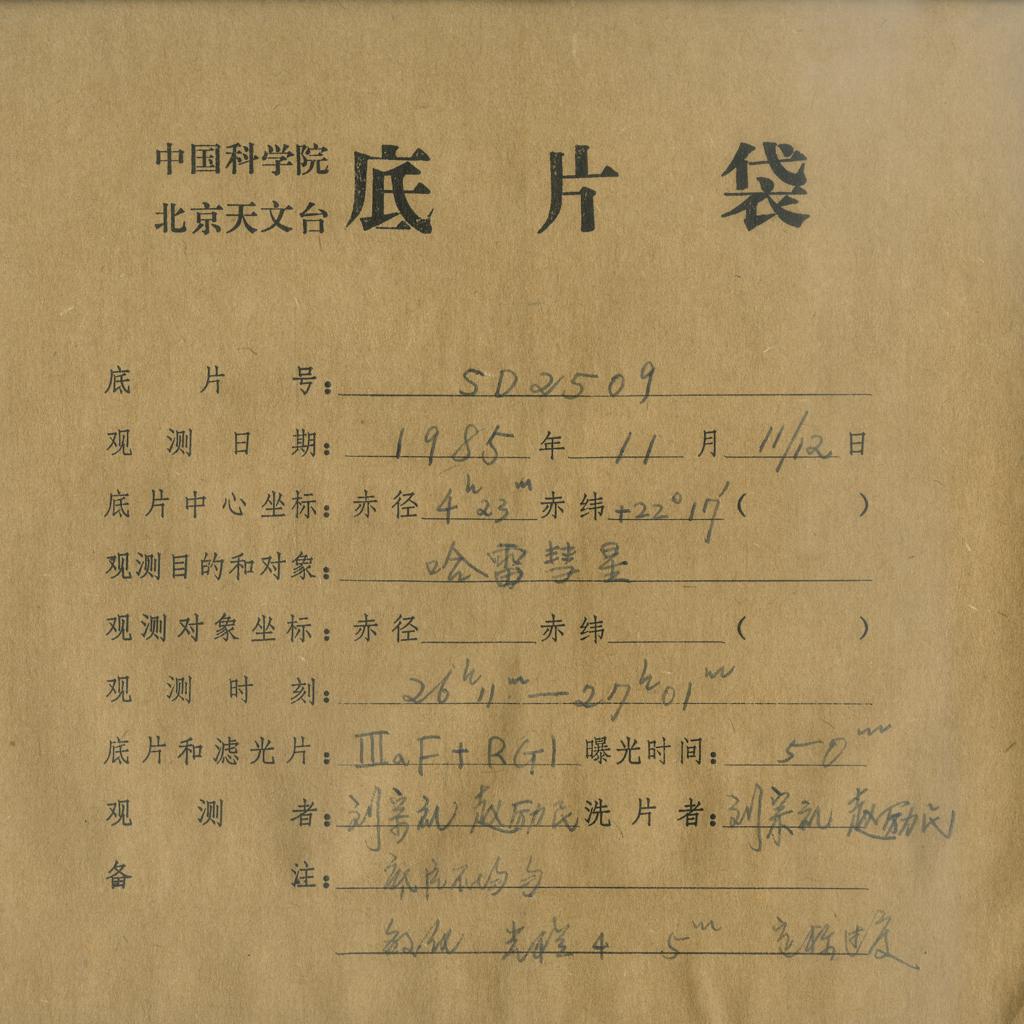 中国科学院
北京天文台
底片袋
底片号：SD2509
观测日期：1985年11月11/12日
底片中心坐标：赤径4h23m赤纬+22°17′（ ）
观测目的和对象：哈雷彗星
观测对象坐标：赤径 赤纬 （ ）
观测时刻：26h11m—27h01m
底片和滤光片：ⅢaF+RG1 曝光时间：50m
观测者：刘宗礼 赵励民 洗片者：刘宗礼 赵励民
备注：底片不均匀
敏化 光楔4 5m 定标过度